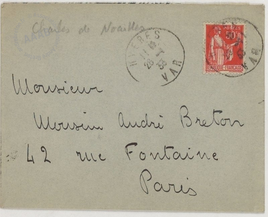 Charles de Noailles
HYERES
VAR
50
Monsieur
Monsieur André Breton
42 rue Fontaine
Paris